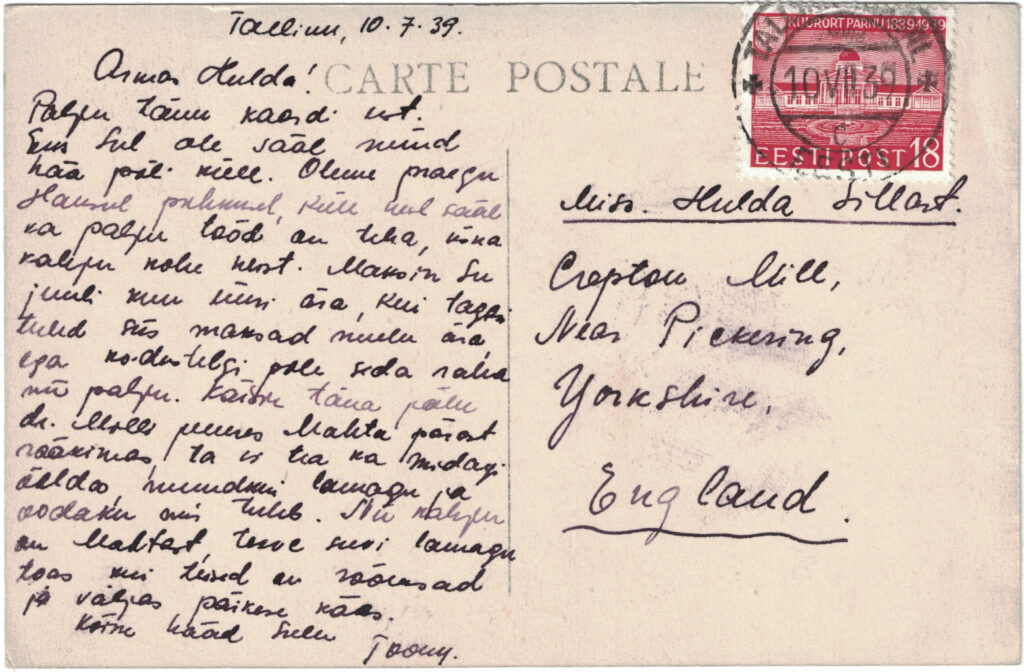 Tallinn, 10.7.39.
CARTE POSTALE
KUURORT PÄRNU 1839-1939
10 VII 39
EESTI POST 18
Armas Hulda!
Palju tänu kaardi eest.
Sul ole sääl nüüd
hää põli küll. Oleme praegu
Hansul puhkusel, küll neil sääl
ka palju tööd on teha,
kahju kohe neist. Maksin Su
juuli kuu üüri ära, kui tagasi
tuled siis maksad mulle ära,
ega kodustelgi pole seda raha
nii palju. Käisin täna pääle
dr. juures Mahta pärast
rääkimas, ta ei tea ka midagi
öelda, muudkui lamagu ja
oodaku mis tuleb. Nii kahju
on Mahtast, terve suvi lamagu
toas kui teised on rõõmsad
ja väljas päikese käes.
Kõike hääd Sulle
Toony.
Miss. Hulda Sillart.
Cropton Mill,
Near Pickering,
Yorkshire,
England.